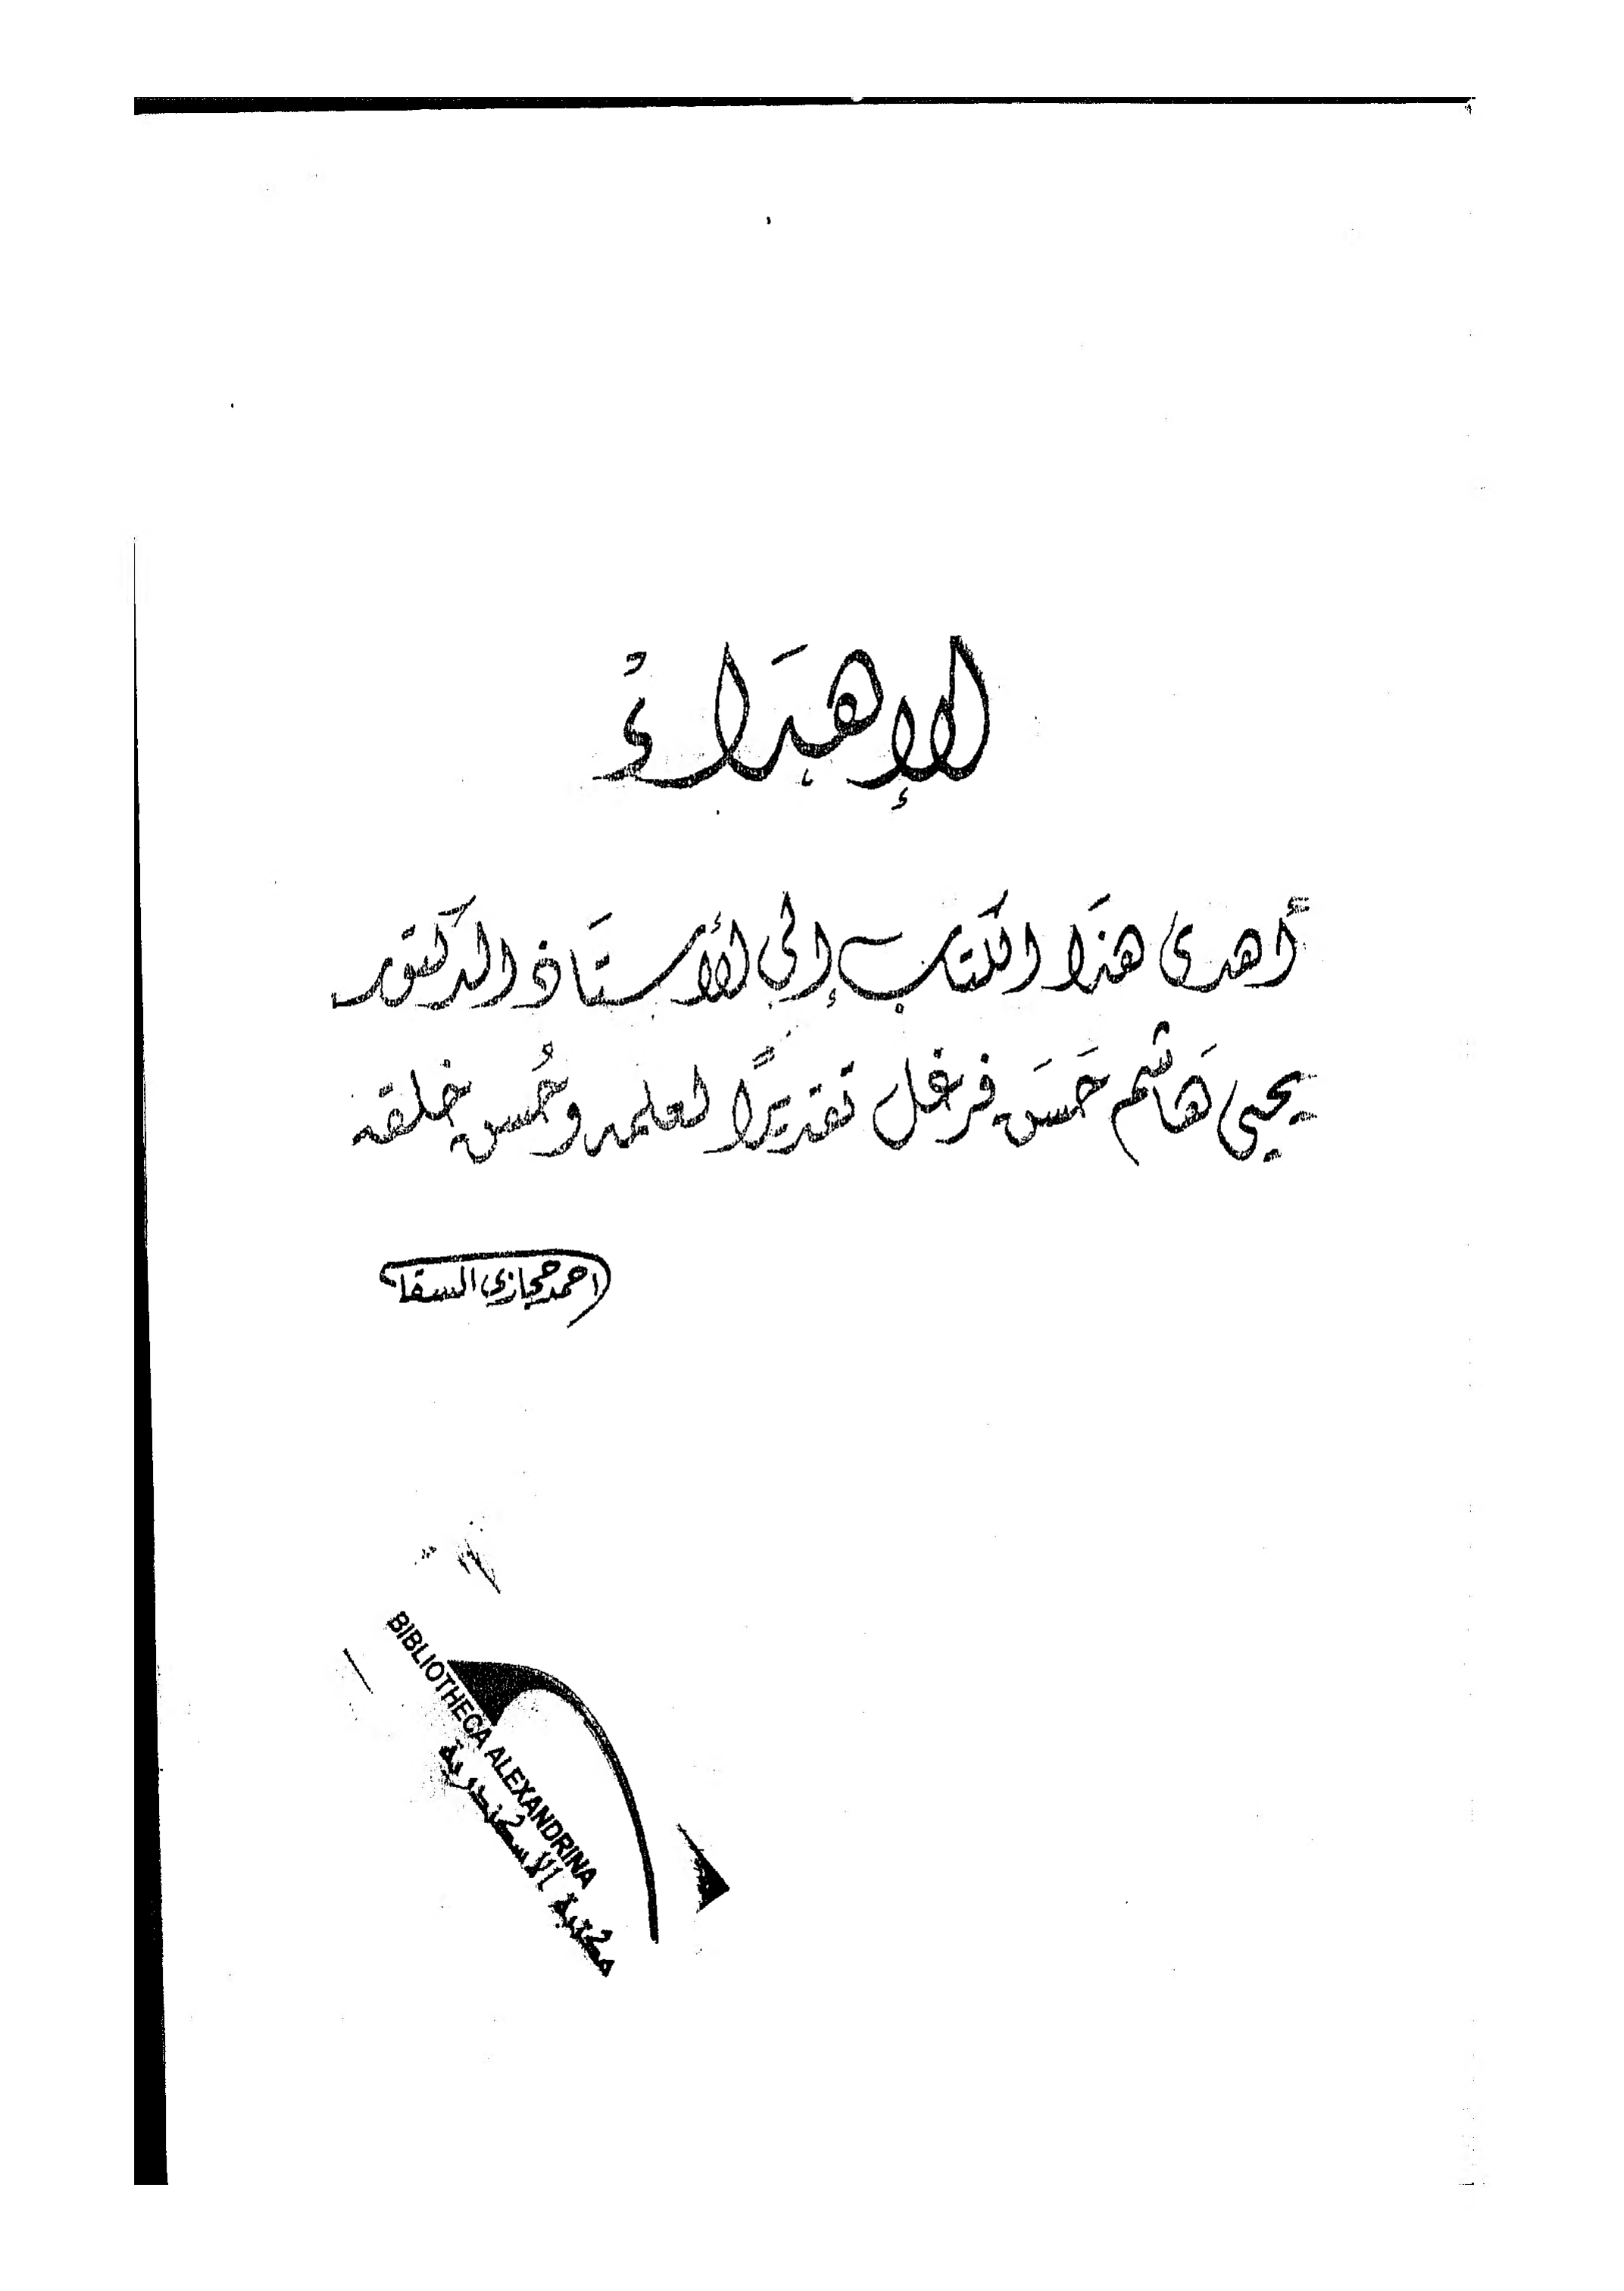 الإهدَاءُ
أهدى هذَا الكتاب إلى الأستَاذ الدكتور
يحيى هَاشم حَسَن فرغل تقديرًا لعلمه وحُسن خلقه
احمد حجازى السقا
BIBLIOTHECA ALEXANDRINA
مكتبة الاسكندرية